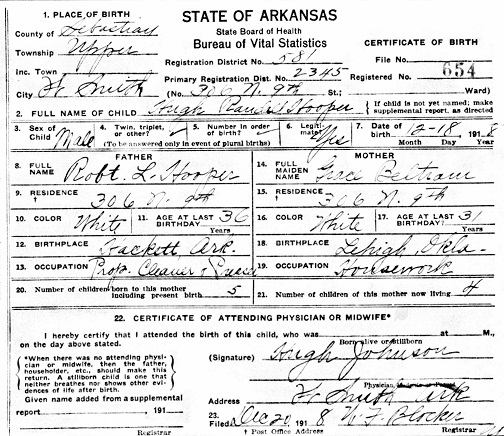 1. PLACE OF BIRTH
STATE OF ARKANSAS
State Board of Health
Bureau of Vital Statistics
CERTIFICATE OF BIRTH
County of Sebastian
Township Upper
Inc. Town
City Ft Smith
Registration District No. 581
Primary Registration Dist. No. 2345
(No. 306 N. 9th St.; Ward)
File No.
Registered No. 654
2. FULL NAME OF CHILD Hugh Randel Hooper
If child is not yet named; make supplemental report, as directed
3. Sex of Child Male
4. Twin, triplet, or other?
5. Number in order of birth?
(To be answered only in event of plural births)
6. Legiti- mate? Yes
7. Date of birth 12-18, 1918
Month Day Year
FATHER
8. FULL NAME Robt. L. Hooper
9. RESIDENCE † 306 N. 9th
10. COLOR White
11. AGE AT LAST BIRTHDAY? 36 Years
12. BIRTHPLACE Hackett Ark.
13. OCCUPATION Prop. Cleaner &
MOTHER
14. FULL MAIDEN NAME Grace Beltram
15. RESIDENCE † 306 N. 9th
16. COLOR White
17. AGE AT LAST BIRTHDAY? 31 Years
18. BIRTHPLACE Lehigh, Okla-
19. OCCUPATION Housework
20. Number of children born to this mother including present birth 5
21. Number of children of this mother now living 4
22. CERTIFICATE OF ATTENDING PHYSICIAN OR MIDWIFE*
I hereby certify that I attended the birth of this child, who was at M.,
on the day above stated.
Born alive or stillborn
*When there was no attending physi-
cian or midwife, then the father,
householder, etc., should make this
return. A stillborn child is one that
neither breathes nor shows other evi-
dences of life after birth.
Given name added from a supplemental
report 191
Registrar
(Signature) Hugh Johnson
Physician, Midwife
Address Ft Smith Ark
23. Filed Dec 20, 1918 Blocker
† Post Office Address
Registrar